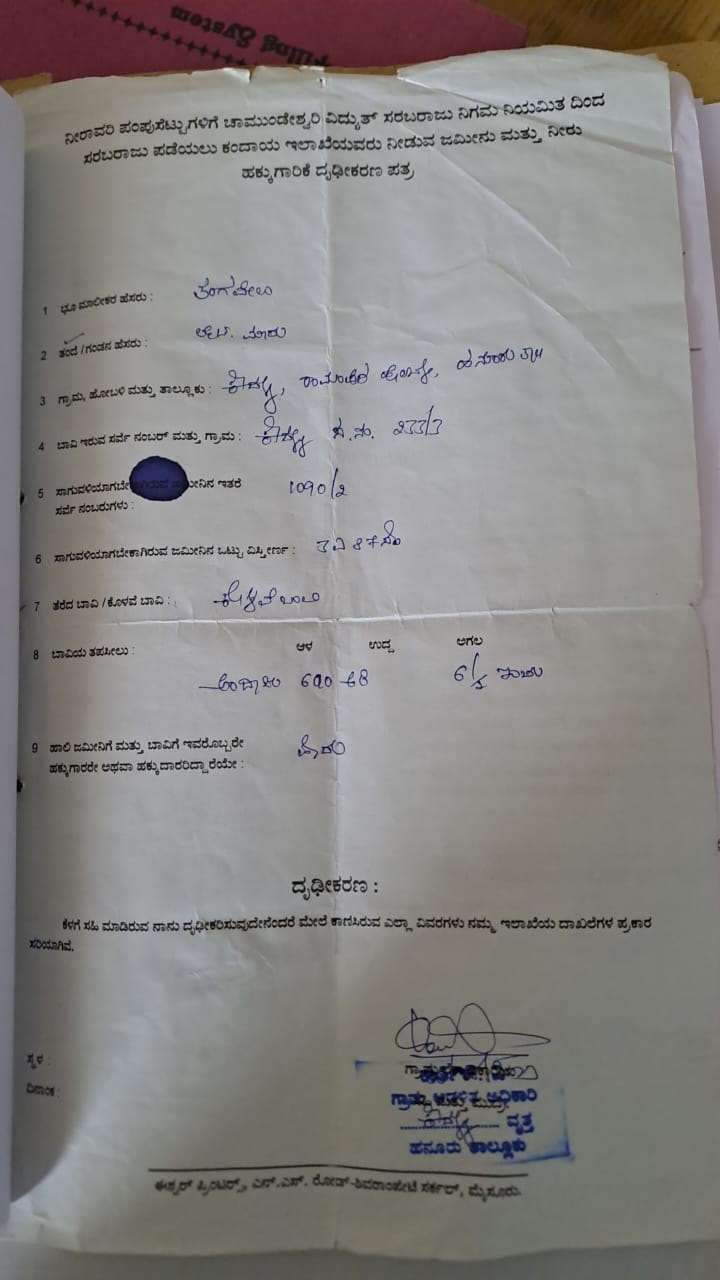 Filing System
ನೀರಾವರಿ ಪಂಪುಸೆಟ್ಟುಗಳಿಗೆ ಚಾಮುಂಡೇಶ್ವರಿ ವಿದ್ಯುತ್ ಸರಬರಾಜು ನಿಗಮ ನಿಯಮಿತ ದಿಂದ
ಸರಬರಾಜು ಪಡೆಯಲು ಕಂದಾಯ ಇಲಾಖೆಯವರು ನೀಡುವ ಜಮೀನು ಮತ್ತು ನೀರು
ಹಕ್ಕುಗಾರಿಕೆ ದೃಢೀಕರಣ ಪತ್ರ
1 ಭೂ ಮಾಲೀಕರ ಹೆಸರು : ತಂಗವೇಲು
2 ತಂದೆ/ಗಂಡನ ಹೆಸರು : ಲೇಟ್. ಮಾದು
3 ಗ್ರಾಮ, ಹೋಬಳಿ ಮತ್ತು ತಾಲ್ಲೂಕು : ಕೌದಳ್ಳಿ, ರಾಮಾಪುರ ಹೋಬಳಿ, ಹನೂರು ತಾ||
4 ಬಾವಿ ಇರುವ ಸರ್ವೆ ನಂಬರ್ ಮತ್ತು ಗ್ರಾಮ : ಕೌದಳ್ಳಿ ಸ.ನಂ. 233/3
5 ಸಾಗುವಳಿಯಾಗಬೇಕಾಗಿರುವ ಜಮೀನಿನ ಇತರೆ 1090/2
ಸರ್ವೆ ನಂಬರುಗಳು :
6 ಸಾಗುವಳಿಯಾಗಬೇಕಾಗಿರುವ ಜಮೀನಿನ ಒಟ್ಟು ವಿಸ್ತೀರ್ಣ :
7 ತೆರೆದ ಬಾವಿ / ಕೊಳವೆ ಬಾವಿ : ಕೊಳವೆ ಬಾವಿ
8 ಬಾವಿಯ ತಪಸೀಲು : ಆಳ ಉದ್ದ ಅಗಲ
ಅಂದಾಜು 6 1/2
9 ಹಾಲಿ ಜಮೀನಿಗೆ ಮತ್ತು ಬಾವಿಗೆ ಇವರೊಬ್ಬರೇ ಹೌದು
ಹಕ್ಕುಗಾರರೇ ಅಥವಾ ಹಕ್ಕುದಾರರಿದ್ದಾರೆಯೇ :
ದೃಢೀಕರಣ :
ಕೆಳಗೆ ಸಹಿ ಮಾಡಿರುವ ನಾನು ದೃಢೀಕರಿಸುವುದೇನೆಂದರೆ ಮೇಲೆ ಕಾಣಿಸಿರುವ ಎಲ್ಲಾ ವಿವರಗಳು ನಮ್ಮ ಇಲಾಖೆಯ ದಾಖಲೆಗಳ ಪ್ರಕಾರ
ಸರಿಯಾಗಿವೆ.
ಸ್ಥಳ :
ದಿನಾಂಕ :
ಗ್ರಾಮ ಆಡಳಿತ ಅಧಿಕಾರಿ
ಕೌದಳ್ಳಿ ವೃತ್ತ
ಹನೂರು ತಾಲ್ಲೂಕು
ಈಶ್ವರ್ ಪ್ರಿಂಟರ್ಸ್, ಎನ್.ಎಸ್. ರೋಡ್-ಶಿವರಾಂಪೇಟೆ ಸರ್ಕಲ್, ಮೈಸೂರು.